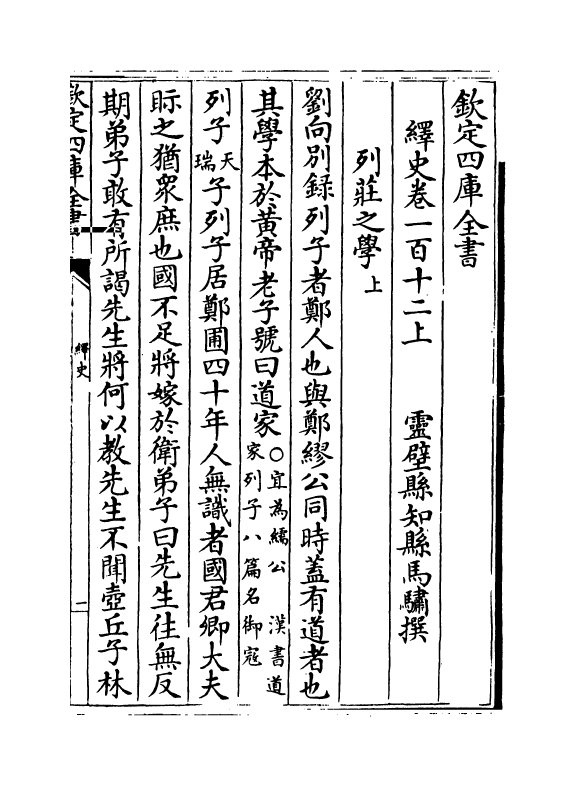 欽定四庫全書
繹史卷一百十二上　　靈壁縣知縣馬驌撰
列莊之學上
劉向別錄列子者鄭人也與鄭繆公同時蓋有道者也
其學本於黃帝老子號曰道家○宜為繻公　漢書道家列子八篇名御寇
列子天瑞子列子居鄭圃四十年人無識者國君卿大夫
眎之猶衆庶也國不足將嫁於衛弟子曰先生往無反
期弟子敢有所謁先生將何以教先生不聞壺丘子林
欽定四庫全書
繹史